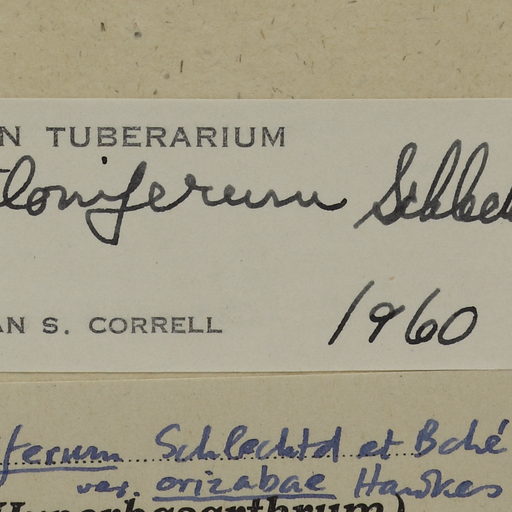 N TUBERARIUM
toniferum Schlecht
AN S. CORRELL
1960
ferum Schlechtd et Bché
var. orizabae Hawkes
Hyperbasarthrum)